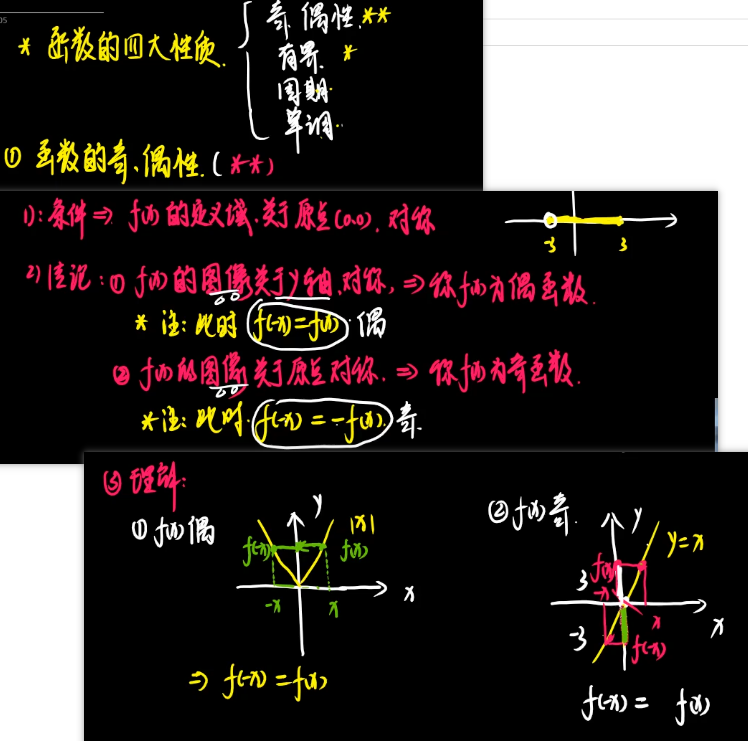 * 函数的四大性质. { 奇.偶性.**
有界. *
周期.
单调.
① 函数的奇、偶性. (**)
1): 条件 ⇒ f(x) 的定义域.关于原点(0,0). 对称
-3 3
2) 结论: ① f(x) 的图像关于y轴.对称, ⇒ 称f(x)为偶函数.
* 注: 此时 f(-x)=f(x). 偶
② f(x)的图像关于原点对称. ⇒ 称f(x)为奇函数.
* 注: 此时. f(-x) = -f(x). 奇.
(3) 理解:
① f(x) 偶 y |x|
f(-x) f(x)
-x x x
⇒ f(-x) = f(x)
② f(x) 奇. y y=x
3 f(x)
-x x x
-3 f(-x)
f(-x) = f(x)